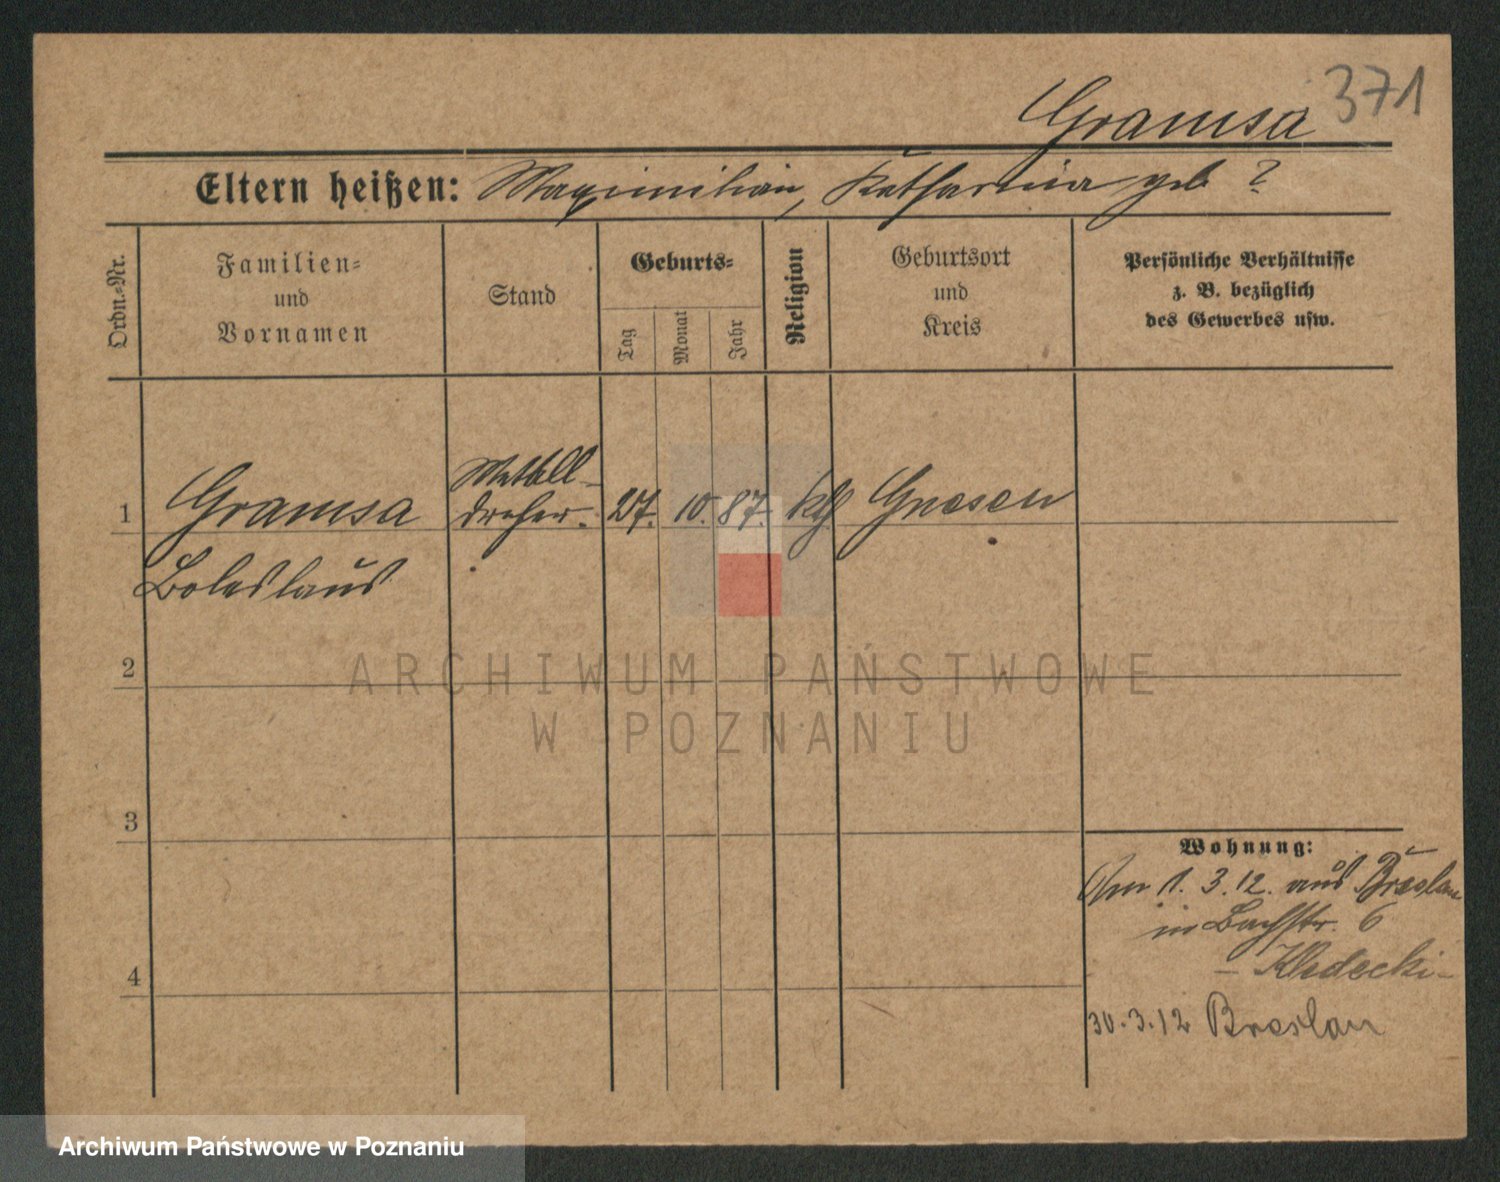 371
Gramsa
Eltern heißen: Maximilian, Katharina geb ?
Ordn.=Nr.
Familien=
und
Vornamen
Stand
Geburts=
Tag
Monat
Jahr
Religion
Geburtsort
und
Kreis
Persönliche Verhältnisse
z. B. bezüglich
des Gewerbes usw.
1
Gramsa
Metall-
dreher.
27. 10. 87. kth Gnesen
Boleslaus
2
ARCHIWUM PAŃSTWOWE
W POZNANIU
3
Wohnung:
Am 1. 3. 12. aus Breslau
in Bachstr. 6
- Kledecki -
4
30.3.12 Breslau
Archiwum Państwowe w Poznaniu